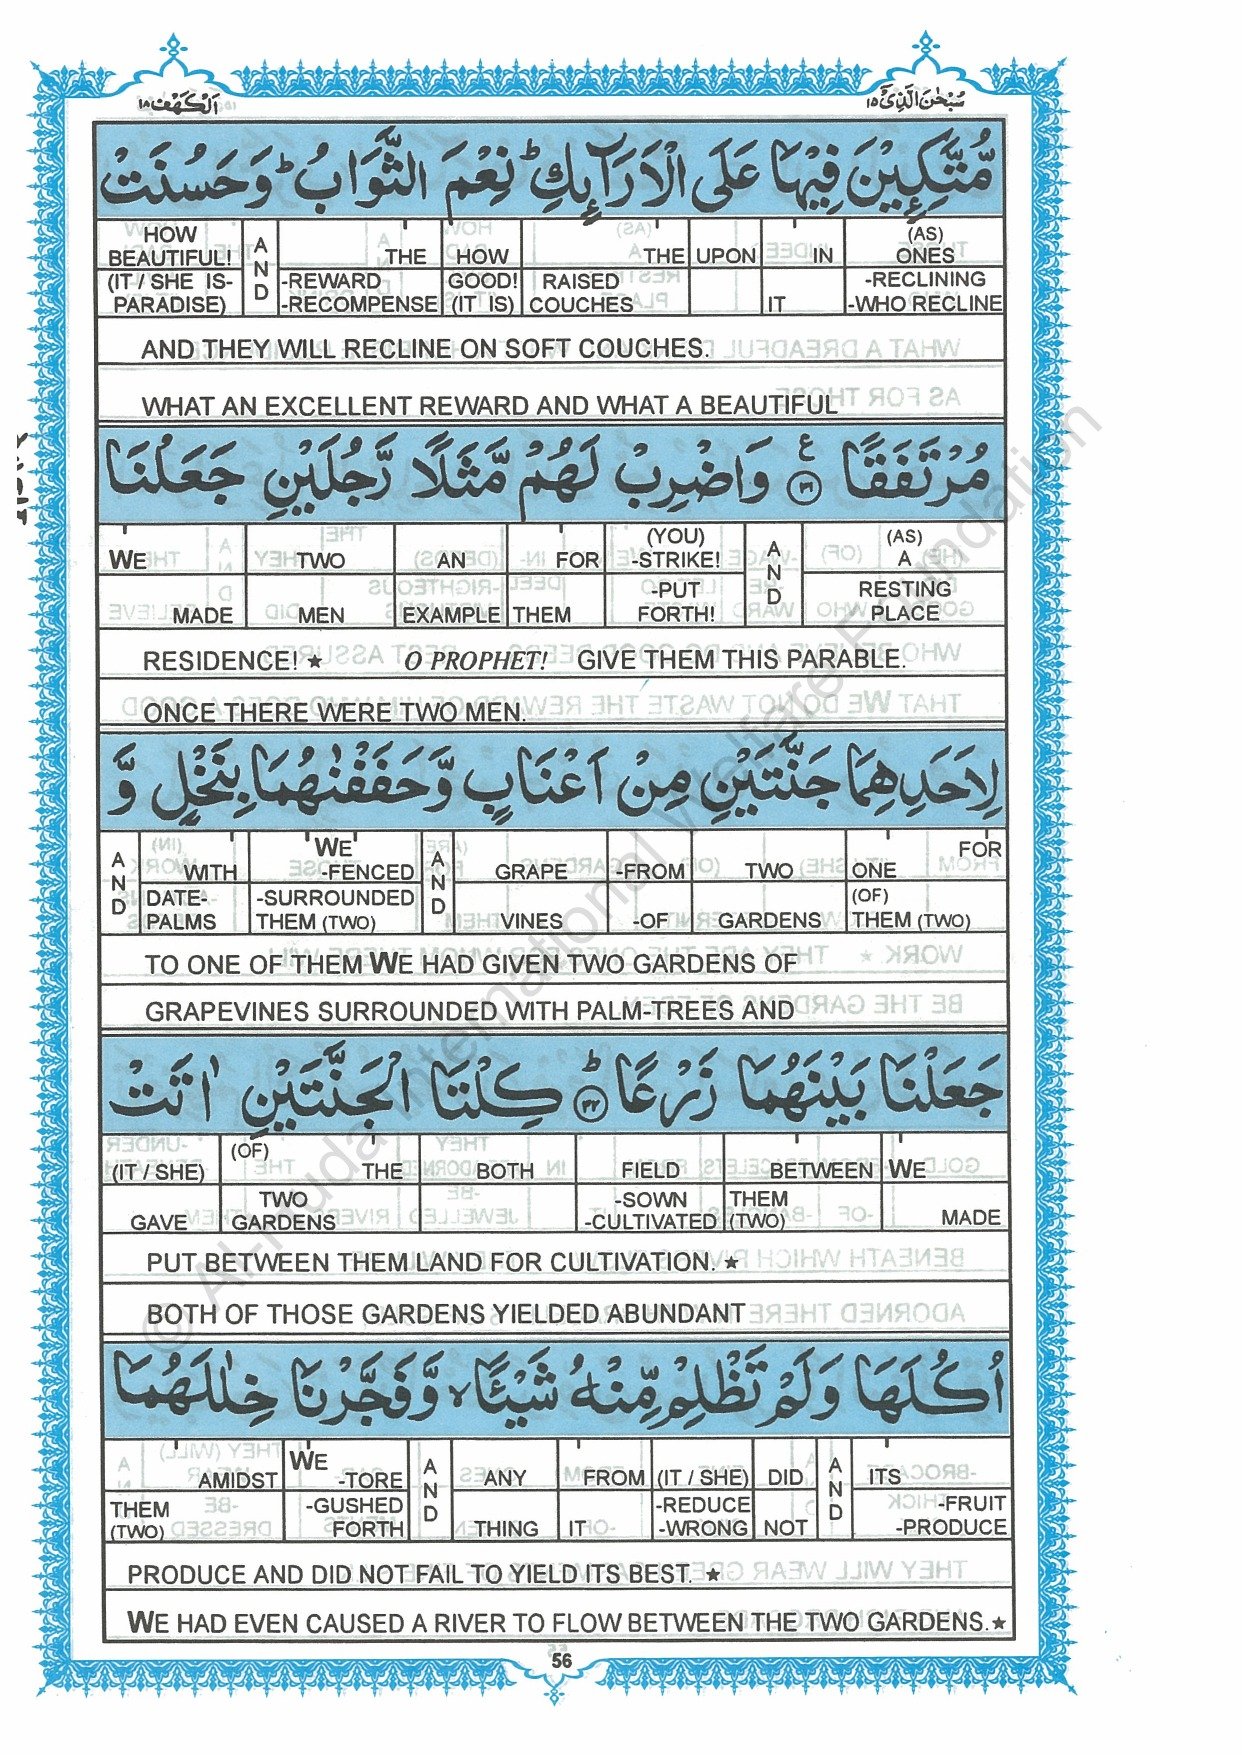 سُبْحٰنَ الَّذِیْۤ ١٥ اَلْكَهْف ١٨
مُّتَّكِـِٕيْنَ فِيْهَا عَلَى الْاَرَآىِٕكِ ؕ نِعْمَ الثَّوَابُ ؕ وَحَسُنَتْ
HOW BEAUTIFUL! AND THE HOW THE UPON IN (AS) ONES
(IT / SHE IS- PARADISE) -REWARD -RECOMPENSE GOOD! (IT IS) RAISED COUCHES IT -RECLINING -WHO RECLINE
AND THEY WILL RECLINE ON SOFT COUCHES.
WHAT AN EXCELLENT REWARD AND WHAT A BEAUTIFUL
مُرْتَفَقًا ۧ ٣١ وَاضْرِبْ لَهُمْ مَّثَلًا رَّجُلَيْنِ جَعَلْنَا
WE TWO AN FOR (YOU) -STRIKE! AND (AS) A
MADE MEN EXAMPLE THEM -PUT FORTH! RESTING PLACE
RESIDENCE! ★ O PROPHET! GIVE THEM THIS PARABLE.
ONCE THERE WERE TWO MEN.
لِاَحَدِهِمَا جَنَّتَيْنِ مِنْ اَعْنَابٍ وَّحَفَفْنٰهُمَا بِنَخْلٍ وَّ
AND WITH WE -FENCED AND GRAPE -FROM TWO FOR ONE
DATE- PALMS -SURROUNDED THEM (TWO) VINES -OF GARDENS (OF) THEM (TWO)
TO ONE OF THEM WE HAD GIVEN TWO GARDENS OF
GRAPEVINES SURROUNDED WITH PALM-TREES AND
جَعَلْنَا بَيْنَهُمَا زَرْعًا ؕ ٣٢ كِلْتَا الْجَنَّتَيْنِ اٰتَتْ
(IT / SHE) (OF) THE BOTH FIELD BETWEEN WE
GAVE TWO GARDENS -SOWN -CULTIVATED THEM (TWO) MADE
PUT BETWEEN THEM LAND FOR CULTIVATION. ★
BOTH OF THOSE GARDENS YIELDED ABUNDANT
اُكُلَهَا وَلَمْ تَظْلِمْ مِّنْهُ شَيْـًٔا ۙ وَّفَجَّرْنَا خِلٰلَهُمَا
AMIDST WE -TORE AND ANY FROM (IT / SHE) DID AND ITS
THEM (TWO) -GUSHED FORTH THING IT -REDUCE -WRONG NOT -FRUIT -PRODUCE
PRODUCE AND DID NOT FAIL TO YIELD ITS BEST. ★
WE HAD EVEN CAUSED A RIVER TO FLOW BETWEEN THE TWO GARDENS.★
56
© Al-Huda International Welfare Foundation